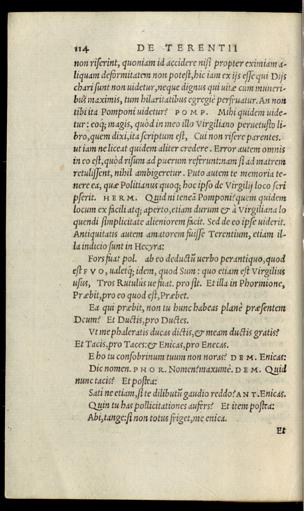 114 DE TERENTII
non riserint, quoniam id accidere nisi propter eximiam a-
liquam deformitatem non potest, hic iam ex ijs esse qui Dijs
chari sunt non uidetur, neque dignus qui uitæ cum muneri-
bus maximis, tum hilaritatibus egregiè perfruatur. An non
tibi ita Pomponi uidetur? POMP. Mihi quidem uide-
tur: eoq; magis, quòd in meo illo Virgiliano peruetusto li-
bro, quem dixi, ita scriptum est, Cui non risere parentes.
ut iam ne liceat quidem aliter credere. Error autem omnis
in eo est, quòd risum ad puerum referunt: nam si ad matrem
retulissent, nihil ambigeretur. Puto autem te memoria te-
nere ea, quæ Politianus quoq; hoc ipso de Virgilij loco scri
pserit. HERM. Quid ni teneā Pomponi? quem quidem
locum ex facili atq; aperto, etiam durum & à Virgiliano lo
quendi simplicitate alieniorem facit. Sed de eo ipse uiderit.
Antiquitatis autem amatorem fuisse Terentium, etiam il-
la indicio sunt in Hecyra:
Fors fuat pol. ab eo deductū uerbo perantiquo, quod
est FVO, ualetq; idem, quod Sum: quo etiam est Virgilius
usus, Tros Rutulus ue fuat. pro sit. Et illa in Phormione,
Præbit, pro eo quod est, Præbet.
Ea qui præbit, non tu hunc habeas planè præsentem
Deum? Et Ductis, pro DucTes.
Vt me phaleratis ducas dictis, & meam ductis gratis?
Et Tacis, pro Taces: & Enicas, pro Enecas.
Eho tu consobrinum tuum non noras? DEM. Enicas:
Dic nomen. PHOR. Nomen? maxumè. DEM. Quid
nunc tacis? Et postea:
Satin etiam, si te dilibutū gaudio reddo? ANT. Enicas.
Quin tu has pollicitationes aufers? Et item postea:
Abi, tange: si non totus friget, me enica.
Et